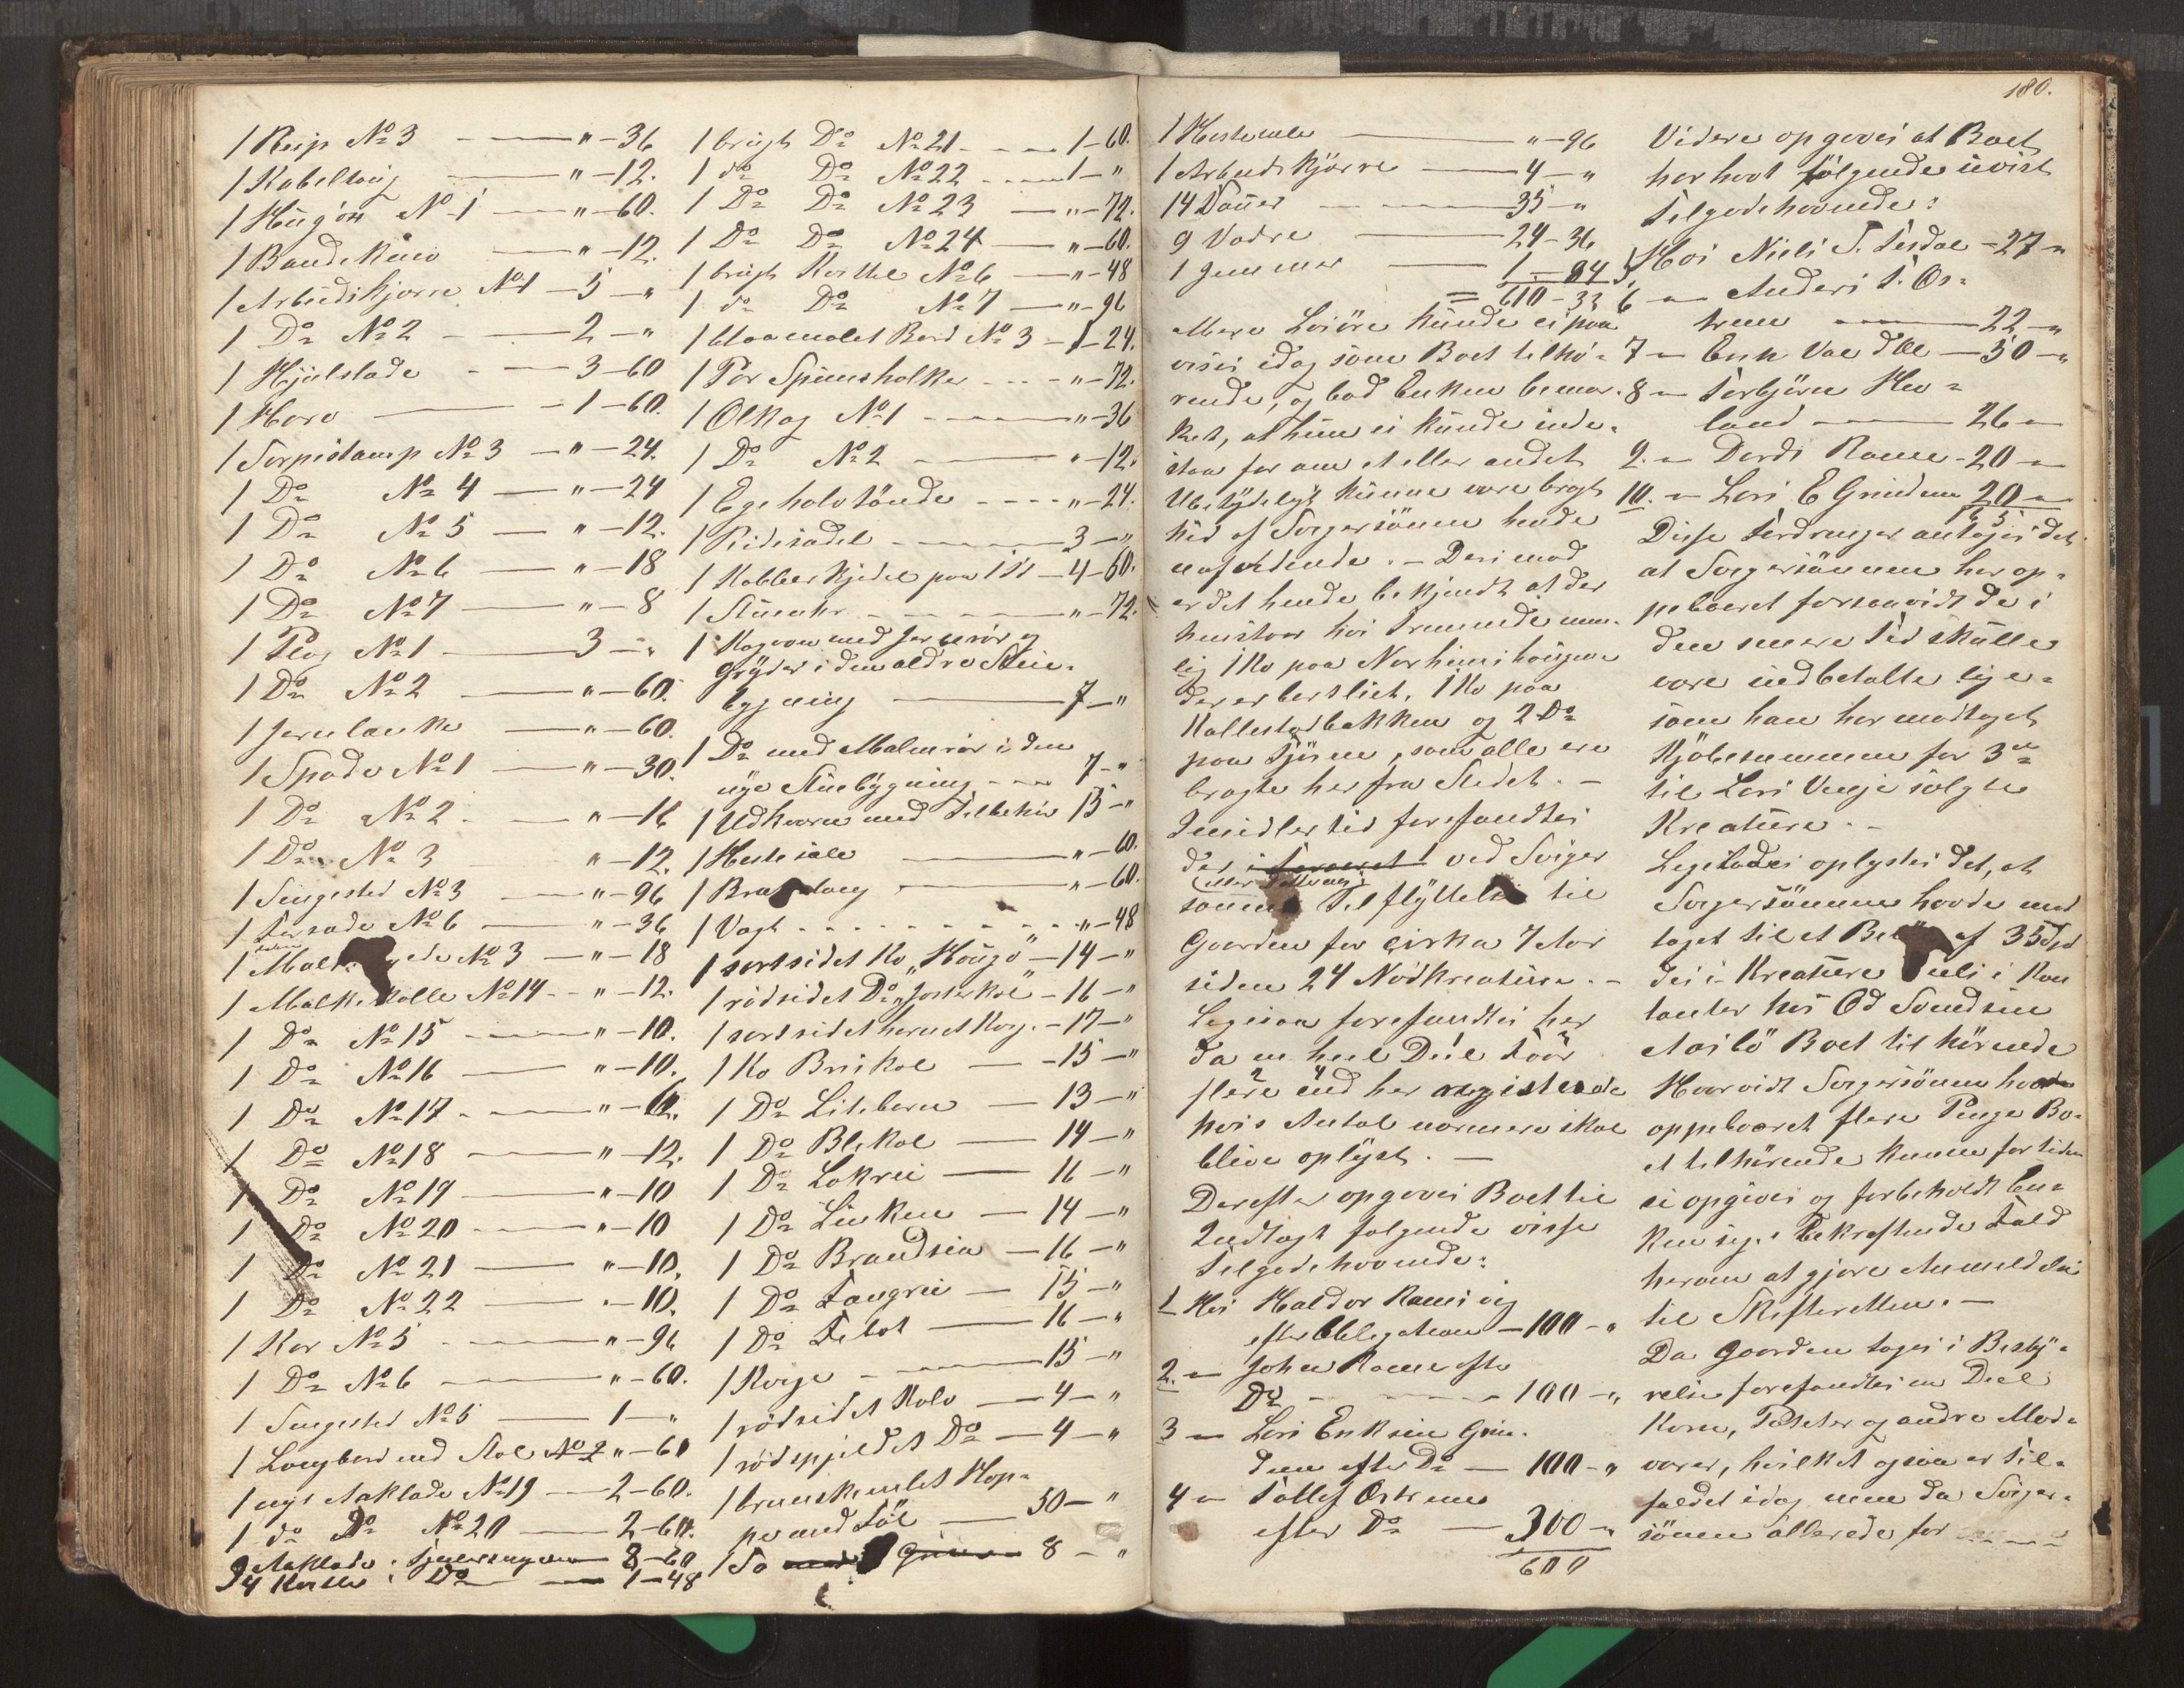 1 Reip No 3 — " — 36
1 Kabeltoug — " — 12.
1 Hugjøn No 1 — " — 60.
1 Baandekniv — " — 12.
1 Arbeidskjerre No 1 — 5 — "
1 Do No 2 — 2 — "
1 Hjulslade — 3 — 60
1 Harv — 1 — 60.
1 Torpistamp No 3 — " — 24.
1 Do No 4 — " — 24
1 Do No 5 — " — 12.
1 Do No 6 — " — 18
1 Do No 7 — " — 8
1 Plog No 1 — 3 — "
1 Do No 2 — " — 60.
1 Jernlænke — " — 60.
1 Spade No 1 — " — 30.
1 Do No 2 — " — 16
1 Do No 3 " — 12.
1 Sengested No 3 — " — 96
1 No 6 — " — 36
1 No 3 — " — 18
1 Malkekolle No 14 — " — 12.
1 Do No 15 — " — 10.
1 Do No 16 — " — 10.
1 Do No 17 — "
1 Do No 18 — " — 12.
1 Do No 19 — " — 10
1 Do No 20 — " — 10
1 Do No 21 — " — 10.
1 Do No 22 — " — 10.
1 Kar No 5 — " — 96
1 Do No 6 — " — 60.
1 Sengested No 5 — 1 — "
1 Langbord med Stol No 2 " — 60
1 nyt Aaklæde No 19 — 2 — 60.
1 do Do No 20 — 2 — 60.
3 Aaklæde i — 8 — 60
4 i Do — 1 — 48
1 brugt Do No 21 — 1 — 60.
1 do Do No 22 — 1 — "
1 Do Do No 23 — " — 72.
1 Do Do No 24 — " — 60.
1 brugt No 6 — " — 48
1 do Do No 7 — " — 96
1 blaamalet Bord No 3 — 1 — 24.
1 Par Spindsholker — " — 72.
1 Ølkag No 1 — " — 36
1 Do No 2 — " — 12.
1 Egehalvtønde — " — 24.
1 Ridesadel — 3 — "
1 Kobberkjedel paa — 4 — 60.
1 Stueuhr — " — 72.
1 Kagovn med Jernrør og
Gryder i den ældre Stue-
bygning — 7 — "
1 Do med Malmrør i den
nye Stuebygning — 7 — "
1 Udkværn med Tilbehør 15 — "
1 Hestesæle — " — 60.
1 — " — 60.
1 Vægt — " — 48
1 sortsidet Ko "Haugo" — 14 — "
1 rødsidet Do — 16 — "
1 sortsidet hornet Kvige — 17 — "
1 Ko Briskol — 15 — "
1 Do Liteborn — 13 — "
1 Do Blekol — 14 — "
1 Do Lokrei — 16 — "
1 Do Linken — 14 — "
1 Do Brandsia — 16 — "
1 Do Fangrei — 15 — "
1 Do — 16 — "
1 Kvige — 15 — "
1 rødsidet Kalv — 4 — "
1 rødspjeldet Do — 4 — "
1 brunskimlet Hop-
pe med Føl — 50 — "
1 So 8 — "
180.
1 Hestesæle — " — 96
1 Arbeidskjærre — 4 — "
14 Sauer — 35 — "
9 Vædre — 24 — 36
1 Gimmer — 1 — 84
= 610 — 33
Mere Løsøre kunde ei paa-
vises idag som Boet tilhø-
rende, og bad Enken bemær-
ket, at hun ei kunde inde-
staa for om et eller andet
Ubetydeligt kunne være bragt
hid af Svigersønnen hende
uafvidende. — Derimod
er det hende bekjendt at der
henstaar hos Fremmede nem-
lig 1 Ko paa
der er bortsléet, 1 Ko paa
Kallestadbakken og 2 Do
paa Tjørn, som alle ere
bragte her fra Stedet. —
Imidlertid forefandtes
der ved Sviger-
sønnens Tilflyttelse til
Gaarden for cirka 7 Aar
siden 24 Nødkreature. —
Ligesaa forefandtes her
da en heel Deel Føør
flere end her registerede
hvis Antal nærmere skal
blive oplyst. —
Derefter opgaves Boet til
Indtægt følgende visse
Tilgodehavende:
1 Hos Haldor Ramsvig
efter Obligation — 100 — "
2. — John Rame efter
Do — 100 — "
3 — Lars Eriksen Grin-
dem efter Do — 100 — "
4 — Tollef Østrem
efter Do — 300 — "
600
Videre opgaves at Boet
har havt følgende uvist
Tilgodehavende:
5, Hos Niels T. Tesdal — 27 — "
6 — Anders T. Øs-
trem — 22 — "
7 — Enk Valdle — 50 — "
8 — Torbjørn Hu-
land — 26 —
9. — Dordi Rame — 20 —
10. — Lars E Grindem 20 —
165
Disse Fordringer antages det
at Svigersønnen har op-
pebaaret forsaavidt de i
den senere Tid skulle
være indbetalte lige-
som han har modtaget
Kjøbesummen for 3de
til Lars Venje solgte
Kreature. —
Ligeledes oplystes det, at
Svigersønnen havde mod-
taget til et Beløb af 35
dels i Kreature dels i Kon-
tanter hos Od Svendsen
Boet tilhørende
Hvorvidt Svigersønnen havde
oppebaaret flere Penge Bo-
et tilhørende kunne for tiden
ei opgives og forbeholdt En-
ken sig i Bekræftende Fald
herom at gjøre Anmeldelse
til Skifteretten. —
Da Gaarden toges i Besty-
relse forefandtes en Deel
Korn, Poteter og andre Mad-
varer, hvilket ogsaa er Til-
fældet idag men da Sviger-
sønnen allerede for